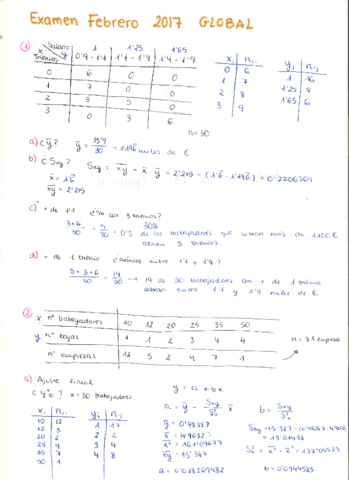 Examen Febrero 2017 GLOBAL
①
x Trienios y Salario 1 1'25 1'65
0'9-1'1 1'1-1'4 1'4-1'9
0 6 0 0
1 7 0 0
2 3 5 0
3 0 3 6
n=30
xi ni.
0 6
1 7
2 8
3 9
yj n.j
1 16
1'25 8
1'65 6
a) ¿ȳ? ȳ = 35'9/30 = 1'196 miles de €
b) ¿Sxy? Sxy = xy - x̄·ȳ = 2'215 - (1'6·1'196) = 0'2206364
x̄ = 1'6
xy = 2'215
c) + de 1'1 ¿% con 3 trienios?
3+6/30 = 9/30 = 0'3 30% de los trabajadores que cobran más de 1100€ tienen 3 trienios.
d) - de 1 trienio ¿cuántos entre 1'1 y 1'9?
5+3+6/30 = 14/30 → 14 de 30 trabajadores con + de 1 trienio cobran entre 1'1 y 1'9 miles de €
②
x nº trabajadores 10 12 20 25 35 50
y nº bajas 1 1 2 3 4 4
nº empresas 12 5 2 4 7 1
n = 31 empresas
a) Ajuste lineal
x = 30 trabajadores
y = a + bx
a = ȳ - Sxy/S²x x̄ b = Sxy/S²x
xi ni.
10 12
12 5
20 2
25 4
35 7
50 1
yj n.j
1 17
2 2
3 4
4 8
a = 0'018269482 b = 0'0944585